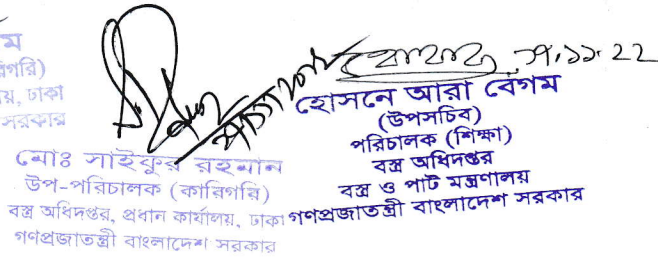 ম
রিগরি)
য়, ঢাকা
সরকার
মোঃ সাইফুর রহমান
উপ-পরিচালক (কারিগরি)
বস্ত্র অধিদপ্তর, প্রধান কার্যালয়, ঢাকা
গণপ্রজাতন্ত্রী বাংলাদেশ সরকার
২৭.১১.22
হোসনে আরা বেগম
(উপসচিব)
পরিচালক (শিক্ষা)
বস্ত্র অধিদপ্তর
বস্ত্র ও পাট মন্ত্রণালয়
গণপ্রজাতন্ত্রী বাংলাদেশ সরকার